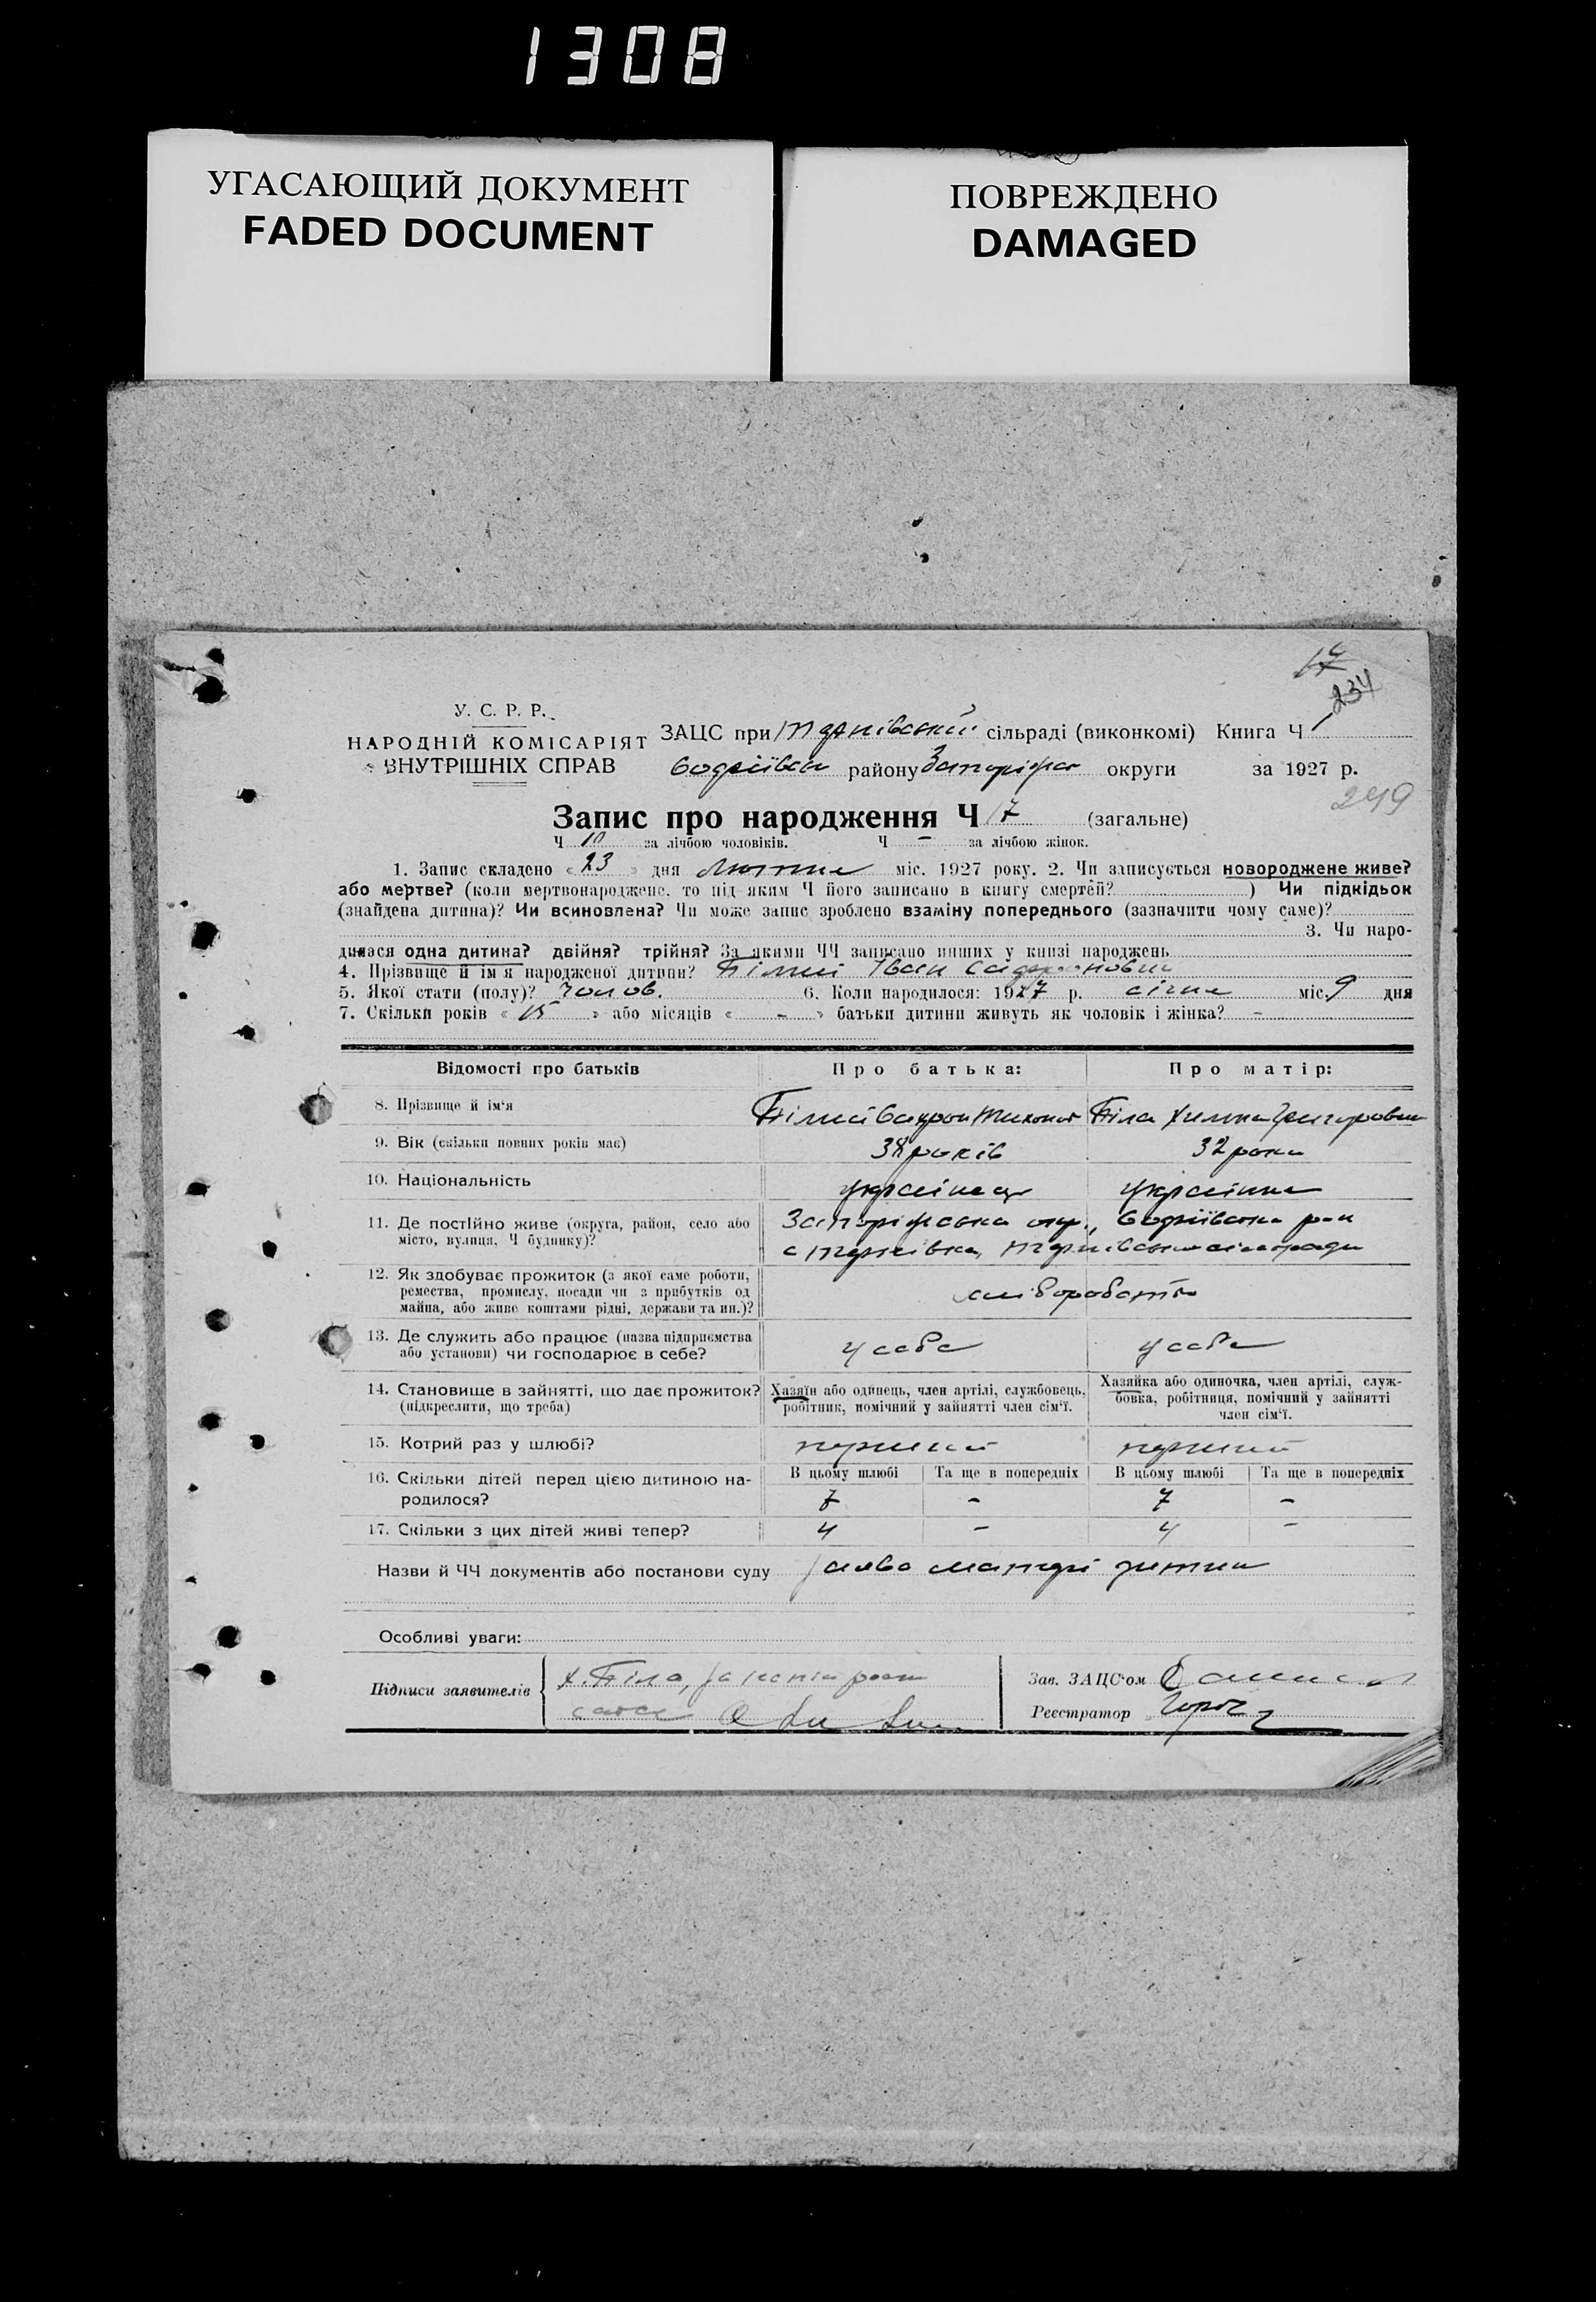 1308
УГАСАЮЩИЙ ДОКУМЕНТ
FADED DOCUMENT
ПОВРЕЖДЕНО
DAMAGED
17
234
У. С. Р. Р.
НАРОДНІЙ КОМІСАРІЯТ
ВНУТРІШНІХ СПРАВ
ЗАЦС при сільраді (виконкомі) Книга Ч 1
району округи за 1927 р.
249
Запис про народження Ч 17 (загальне)
Ч 10 за лічбою чоловіків. Ч – за лічбою жінок.
1. Запис складено « 23 » дня міс. 1927 року. 2. Чи записується новороджене живе?
або мертве? (коли мертвонароджене, то під яким Ч його записано в книгу смертей? ) Чи підкідьок
(знайдена дитина)? Чи всиновлена? Чи може запис зроблено взаміну попереднього (зазначити чому саме)?
3. Чи наро-
дилася одна дитина? двійня? трійня? За якими ЧЧ записано инших у книзі народжень
4. Прізвище й ім'я народженої дитини? Білий Іван
5. Якої стати (полу)? чолов. 6. Коли народилося: 1927 р. січня міс. 9 дня
7. Скільки років « 15 » або місяців « – » батьки дитини живуть як чоловік і жінка? –
Відомості про батьків
Про батька:
Про матір:
8. Прізвище й ім'я
Білий Біла
9. Вік (скільки повних років має)
38 років 32 роки
10. Національність
українець українка
11. Де постійно живе (округа, район, село або
місто, вулиця, Ч будинку)?
Запоріжська окр.,
12. Як здобуває прожиток (з якої саме роботи,
ремества, промислу, посади чи з прибутків од
майна, або живе коштами рідні, держави та ин.)?
13. Де служить або працює (назва підприємства
або установи) чи господарює в себе?
у себе у себе
14. Становище в зайнятті, що дає прожиток?
(підкреслити, що треба)
Хазяїн або одинець, член артілі, службовець,
робітник, помічний у зайнятті член сім'ї.
Хазяйка або одиночка, член артілі, служ-
бовка, робітниця, помічний у зайнятті
член сім'ї.
15. Котрий раз у шлюбі?
перший перший
16. Скільки дітей перед цією дитиною на-
родилося?
В цьому шлюбі Та ще в попередніх В цьому шлюбі Та ще в попередніх
7 – 7 –
17. Скільки з цих дітей живі тепер?
4 – 4 –
Назви й ЧЧ документів або постанови суду заява матері
Особливі уваги:
Підписи заявителів Х. Біла,
Зав. ЗАЦС'ом
Реєстратор